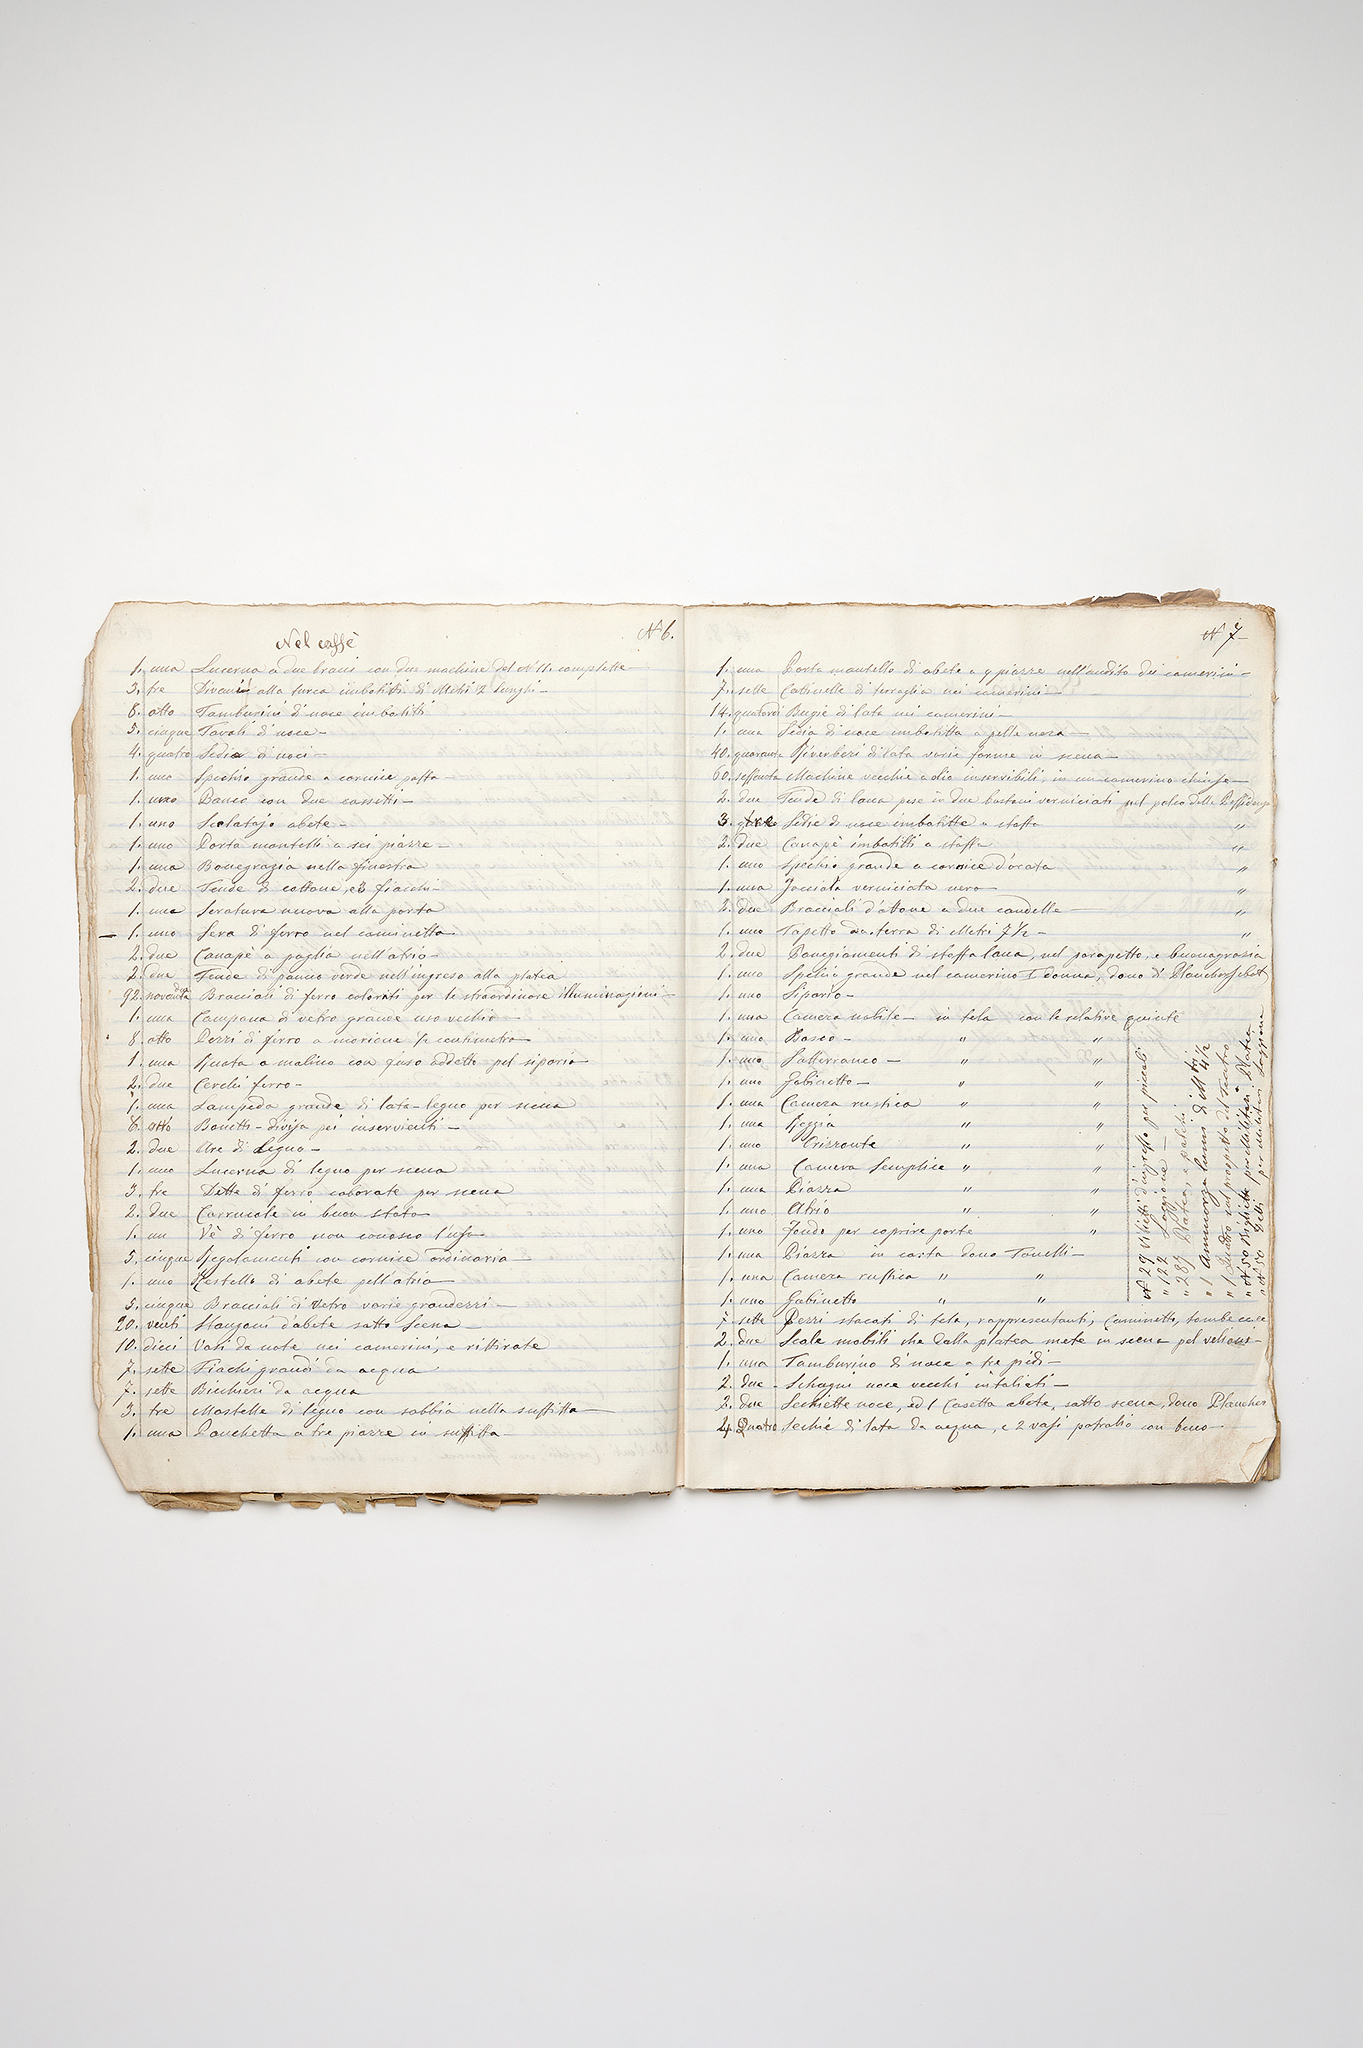 Nel caffè
N 6.
1. una Lucerna a due bracci con due machine del N 11. complette
3. tre Divani alla turca imbotitti di Metri 12 lunghi
8. otto Tamburini di noce imbotitti
5. cinque Tavoli di noce
4. quatro Sedie di noci
1. uno Spechio grande a cornice
1. uno Banco con due cassetti
1. uno Scolatajo abete
1. uno Porta mantelli a sei piazze
1. una Bonegrazia nella finestra
2. due Tende di cottone, e 3 fiochi
1. una Seratura nuova alla porta
1. una Sera di ferro nel caminetto
2. due Canapè a paglia nell'atrio
2. due Tende di panno verde nell'ingreso alla platea
92. novanta due Bracciali di ferro colorati per le straordinare illuminazioni
1. una Campana di vetro grande uso vechio
8. otto Pezzi di ferro a 1/2 centimetro
1. una Ruota a molino con fuso addetto pel sipario
2. due Cerchi ferro
1. una Lampeda grande di lata-legno per scena
8. otto Bonetti-divisa pei inservienti
2. due Are di Legno
1. uno Lucerna di legno per scena
3. tre Dette di ferro colorate per scena
2. due Carrucole in buon stato
1. un Vè di ferro non conosco l'uso
5. cinque Regolamenti con cornice ordinaria
1. uno Restello di abete nell'atrio
5. cinque Bracciali di vetro varie grandezzi
20. venti Stangoni d'abete sotto Scena
10. dieci Vasi da note nei camerini, e rittirate
7. sette Fiachi grandi da acqua
7. sette Bichieri da acqua
3. tre Mastelle di legno con sabbia nella suffitta
1. una Panchetta a tre piazze in suffitta
N 7
1. una Porta mantello di abete a 9 piazze nell'andito dei camerini
7. sette Catinelle di terraglia nei camerini
14. quatordi Bugie di lata nei camerini
1. una Sedia di noce imbotitta a pelle nera
40. quaranta Riverberi di lata varie forme in scena
60. sessanta Machine vecchie a olio inservibili, in un camerino chiuse
2. due Tende di lana pese in due bastoni verniciati nel palco della
3. tre Sedie di noce imbotitte a stoffa "
2. due Canapè imbotitti a stoffa "
1. uno Spechio grande a cornice d'orata "
1. una verniciata nero "
2. due Bracciali d'ottone a due candelle "
1. uno Tapetto da terra di Metri 7 1/2 "
2. due Panegiamenti di stoffa lana, nel parapetto, e buonagrazia
1. uno Spechio grande nel camerino I donna, dono di
1. uno Sipario
1. una Camera nobile in tela con le relative quinte
1. uno Bosco " "
1. uno Sotterraneo " "
1. uno Gabinetto "
1. una Camera rustica " "
1. una Reggia " "
1. uno Orizzonte " "
1. una Camera Semplice " "
1. una Piazza " "
1. uno Atrio " "
1. uno Fondo per coprire porte "
1. una Piazza in carta dono Tonelli
1. una Camera rustica " "
1. uno Gabinetto " "
7 sette Pezzi stacati di tela, rappresentanti, Caminetto, tombe ecc
2. due Scale mobili che dalla platea mete in scena pel
1. una Tamburino di noce a tre piedi
2. due Schagni noce vecchi intaliati
2. due Sechiette noce, ed 1 Casetta abete, sotto scena, dono Plancher
4. Quatro Sechie di lata da acqua, e 2 vasi petrolio con beco
N 29 Viglietti d'ingresso per piccoli
" 122 Loggione
" 289 Platea, e palchi
" 1 Ammorza lumi di M tri 4 1/2
" 1 Quadro nel prospetto del Teatro
" N 50 Biglietti per Militari Platea
" N 50 Detti per Militari Loggione